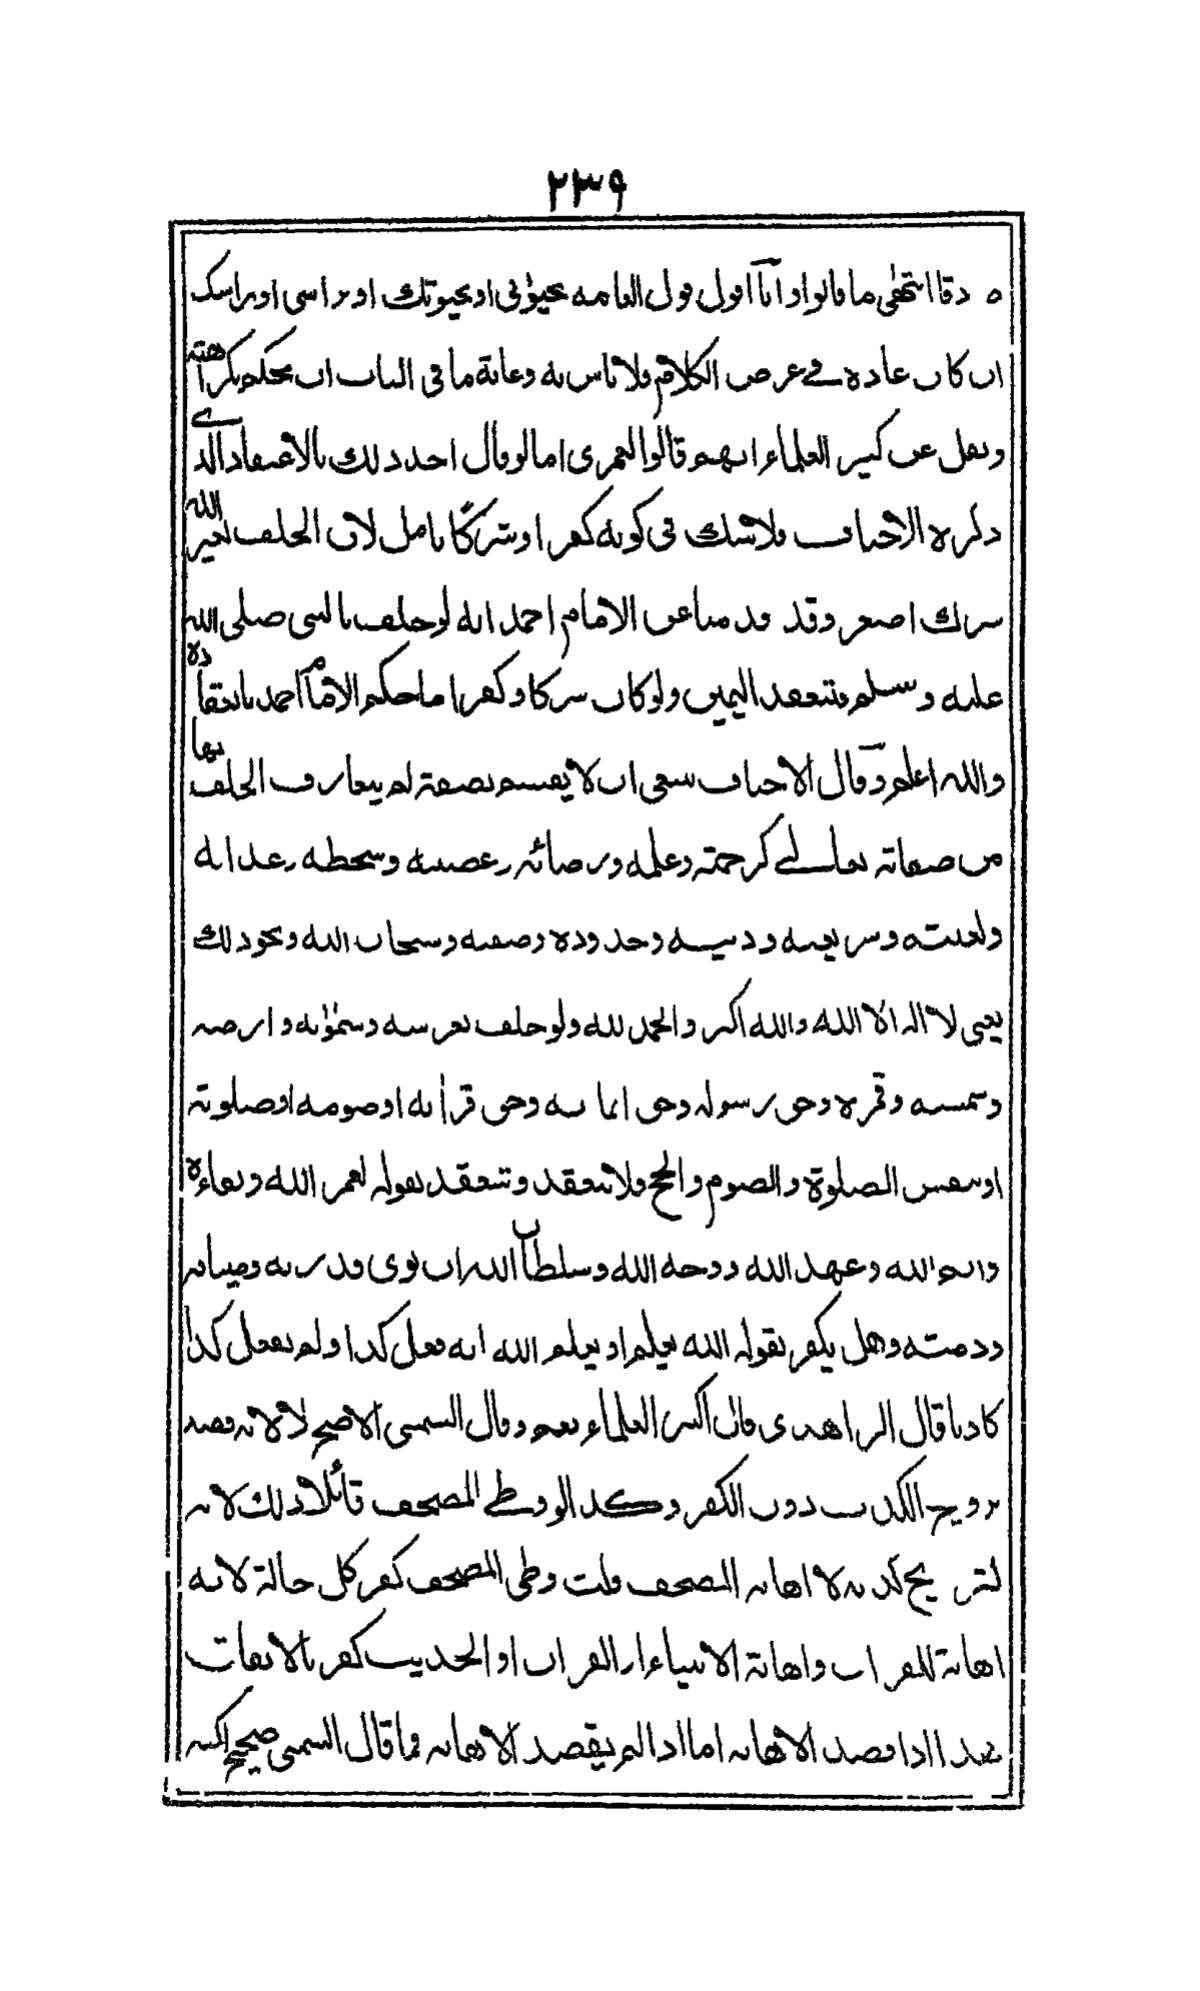 ٢٣٩
ه دقا انتهى ما قالوا وانا اقول قول العامه بحيوتى او بحيوتك او براسى او براسك
ان كان عاده في عرض الكلام فلا باس به وغاية ما فى الباب ان يحكم بكراهته
ونقل عن كثير العلماء انهم قالوا لعمرى اما لو قال احد ذلك بالاعتقاد الذي
ذكره الاحناف فلا شك فى كونه كفرا او شركا تامل لان الحلف لغير الله
شرك اصغر وقد قدمنا عن الامام احمد انه لو حلف بالنبى صلى الله
عليه وسلم فتنعقد اليمين ولو كان شركا وكفرا ما حكم الامام احمد بانعقاده
والله اعلم وقال الاحناف ينبغى ان لا يقسم بصفة لم يتعارف الحلف بها
من صفاته تعالے كرحمته وعلمه ورضائه وغضبه وسخطه وعذابه
ولعنته وشريعته ودينه وحدوده وصفته وسبحان الله ونحو ذلك
يعنى لا اله الا الله والله اكبر والحمد لله ولو حلف بعرشه وسموٰته وارضه
وشمسه وقمره وحق رسوله وحق ايمانه وحق قرأنه او صومه او صلوته
او بنفس الصلوة والصوم والحج فلا تنعقد وتنعقد بقوله لعمر الله وبقاءه
وايم الله وعهد الله ووجه الله وسلطان الله ان نوى قدرته وميثاقه
وذمته وهل يكفر بقوله الله يعلم او يعلم الله انه فعل كذا ولم يفعل كذا
كاذبا قال الزاهدى قال اكثر العلماء نعم وقال الشمنى الاصح لا لانه قصد
ترويج الكذب دون الكفر وكذا لو وطى المصحف قائلا ذلك لانه
لترويج كذبه لا اهانه المصحف قلت وطى المصحف كفر كل حالة لانه
اهانة للقران واهانة الانبياء او القران او الحديث كفر بالاتفاق
هذا اذا قصد الاهانه اما اذا لم يقصد الاهانه فما قال الشمنى صحيح لكنه